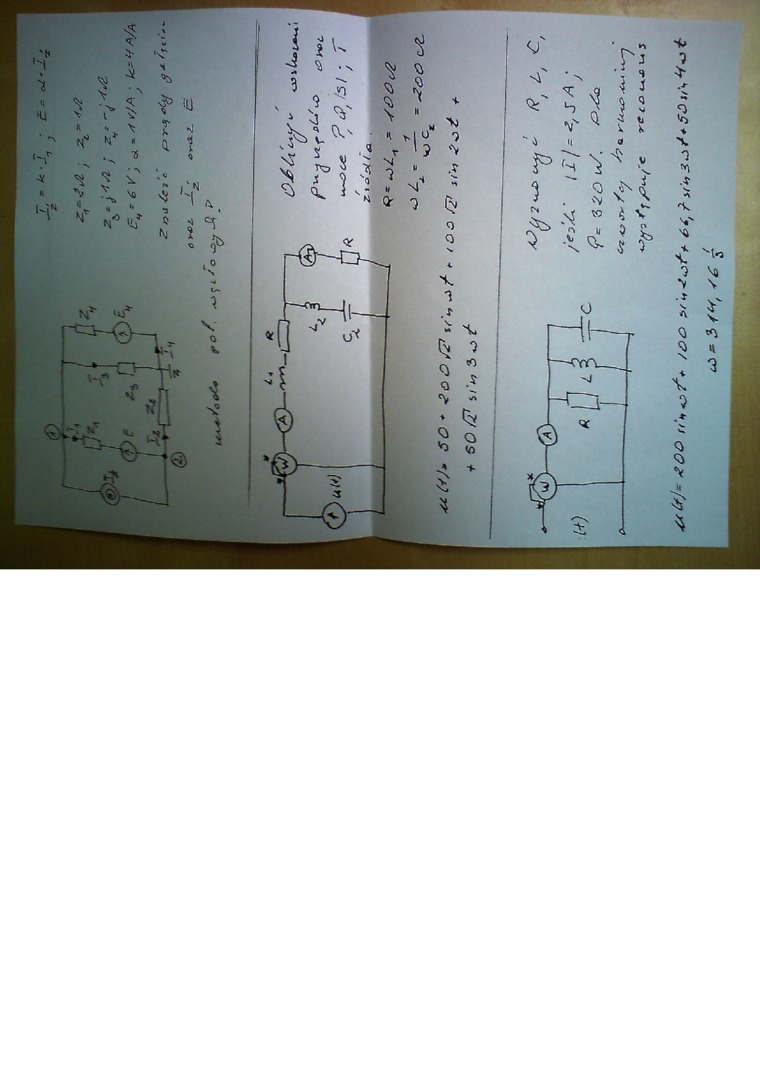 I_z = k·I_1 ; E = α·I_2
Z_1 = 2Ω ; Z_2 = 1Ω
Z_3 = j1Ω ; Z_4 = -j1Ω
E_4 = 6V ; α = 1V/A ; k = 4A/A
znaleźć prądy gałęziowe
oraz I_z oraz E
metodą pot. węzłowych.
1
I_z
I_1
Z_1
E
I_3
Z_3
Z_4
E_4
I_2
Z_2
I_4
2
Obliczyć wskazania
przyrządów oraz
moce P, Q, |S|, T
źródła.
R = ωL_1 = 100Ω
ωL_2 = 1/ωC_2 = 200Ω
u(t)
* *
W
A
L_1
R
L_2
C_2
A_1
R
u(t) = 50 + 200√2 sin ωt + 100√2 sin 2ωt +
+ 50√2 sin 3ωt
Wyznaczyć R, L, C,
jeśli |I| = 2,5A ;
P = 320W. Dla
czwartej harmonicznej
występuje rezonans
* *
W
A
R
L
C
u(t) = 200 sin ωt + 100 sin 2ωt + 66,7 sin 3ωt + 50 sin 4ωt
ω = 314,16 1/s